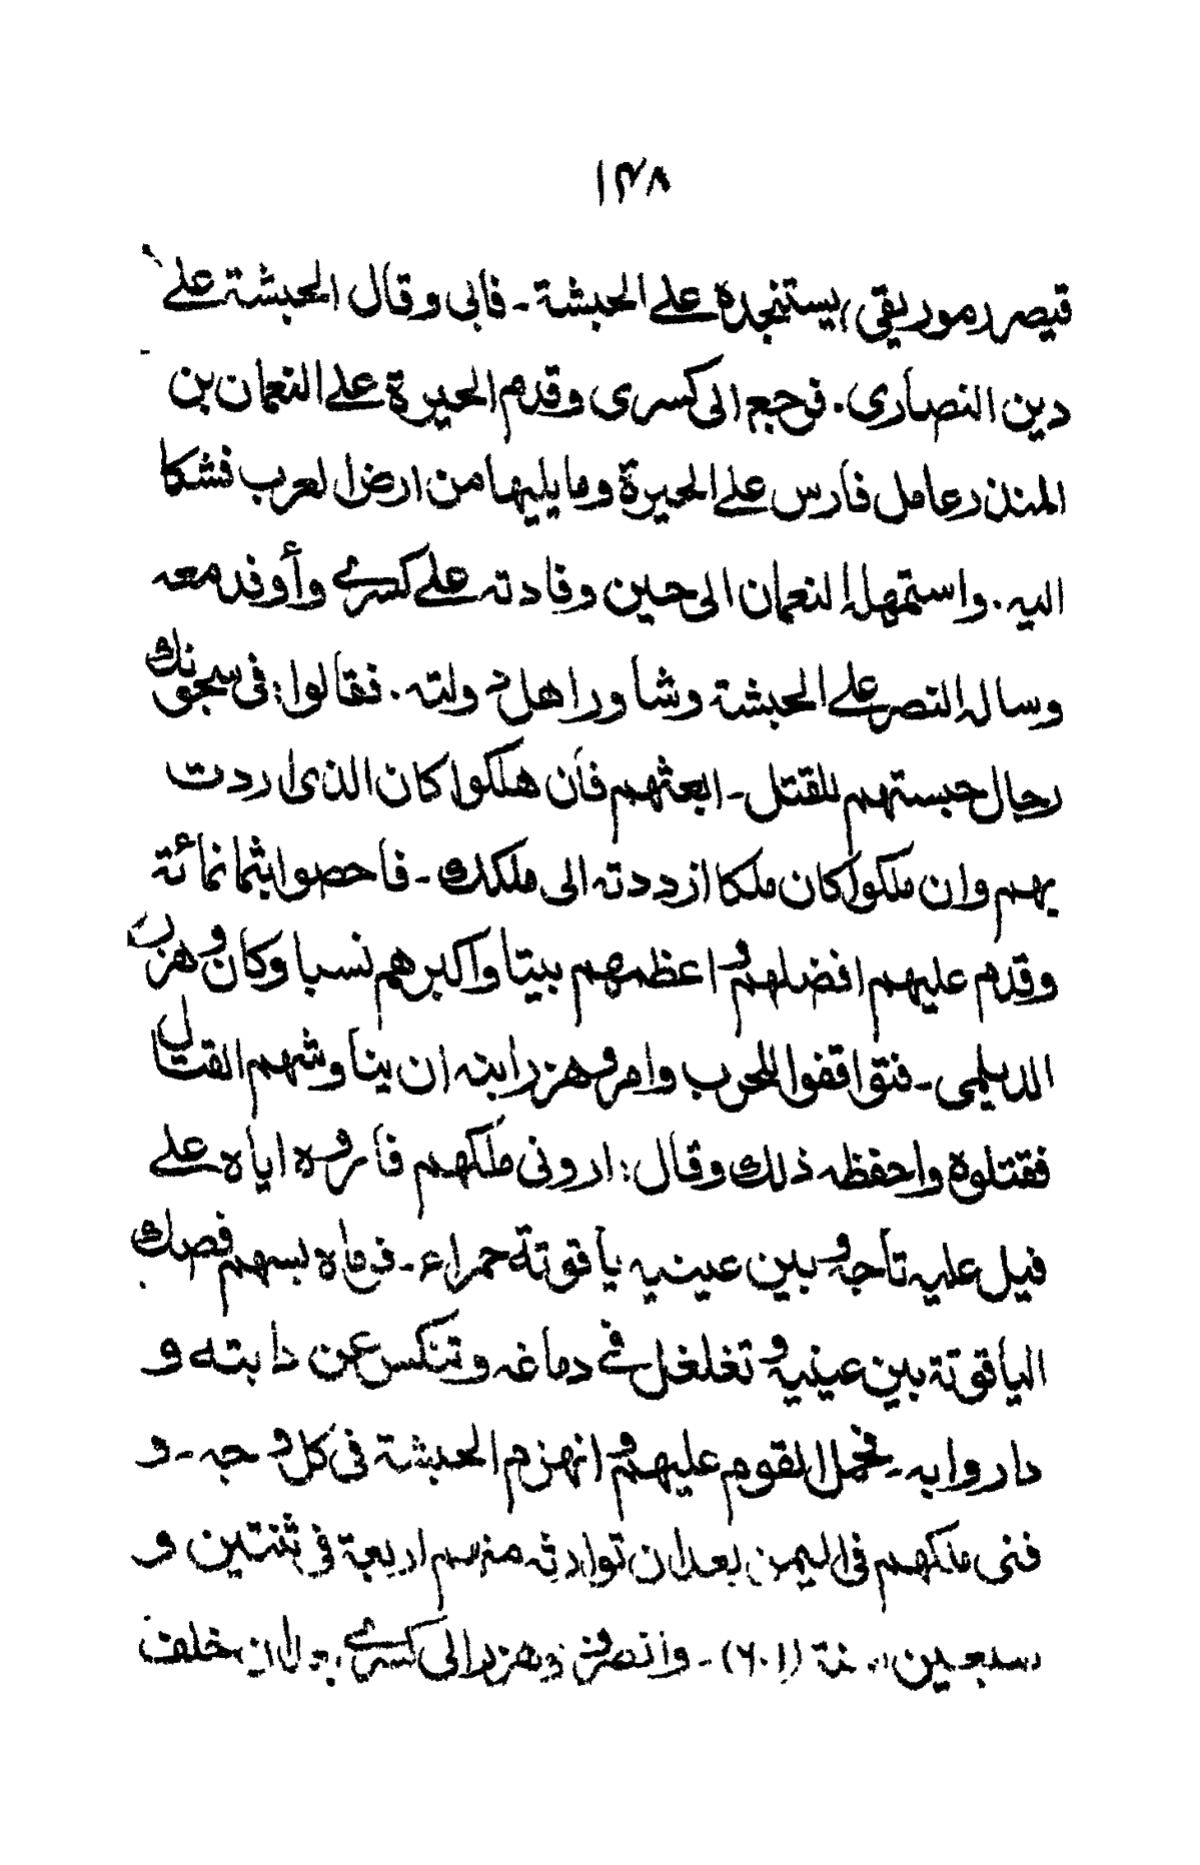 ١٣٨
قيصر (موريقي) يستنجده على الحبشة - فابى وقال الحبشة على
دين النصارى . فرجع الى كسرى وقدم الحيرة على النعمان بن
المنذر عامل فارس على الحيرة وما يليها من ارض العرب فشكا
اليه . واستمهله النعمان الى حين وفادته على كسرى وأوفد معه
وساله النصر على الحبشة وشاور اهل دولته . فقالوا : فى سجونك
رجال حبستهم للقتل - ابعثهم فان هلكوا كان الذى اردت
بهم وان ملكوا كان ملكا ازددته الى ملكك - فاحصوا ثمانمائة
وقدم عليهم افضلهم و اعظمهم بيتا واكبرهم نسبا وكان وهزر
الديلمى - فتواقفوا للحرب وامر وهزر ابنه ان يناوشهم القتال
فقتلوه واحفظه ذلك وقال : ارونى ملكهم فاروه اياه على
فيل عليه تاجه و بين عينيه ياقوتة حمراء - فرماه بسهم فصك
الياقوتة بين عينيه و تغلغل فى دماغه وتنكس عن دابته و
داروا به - فحمل القوم عليهم و انهزم الحبشة فى كل وجه - و
فنى ملكهم فى اليمن بعد ان توارثه منهم اربعة فى ثنتين و
سبعين سنة (٦٠١) - وانصرف وهزر الى كسرى بعد ان خلف